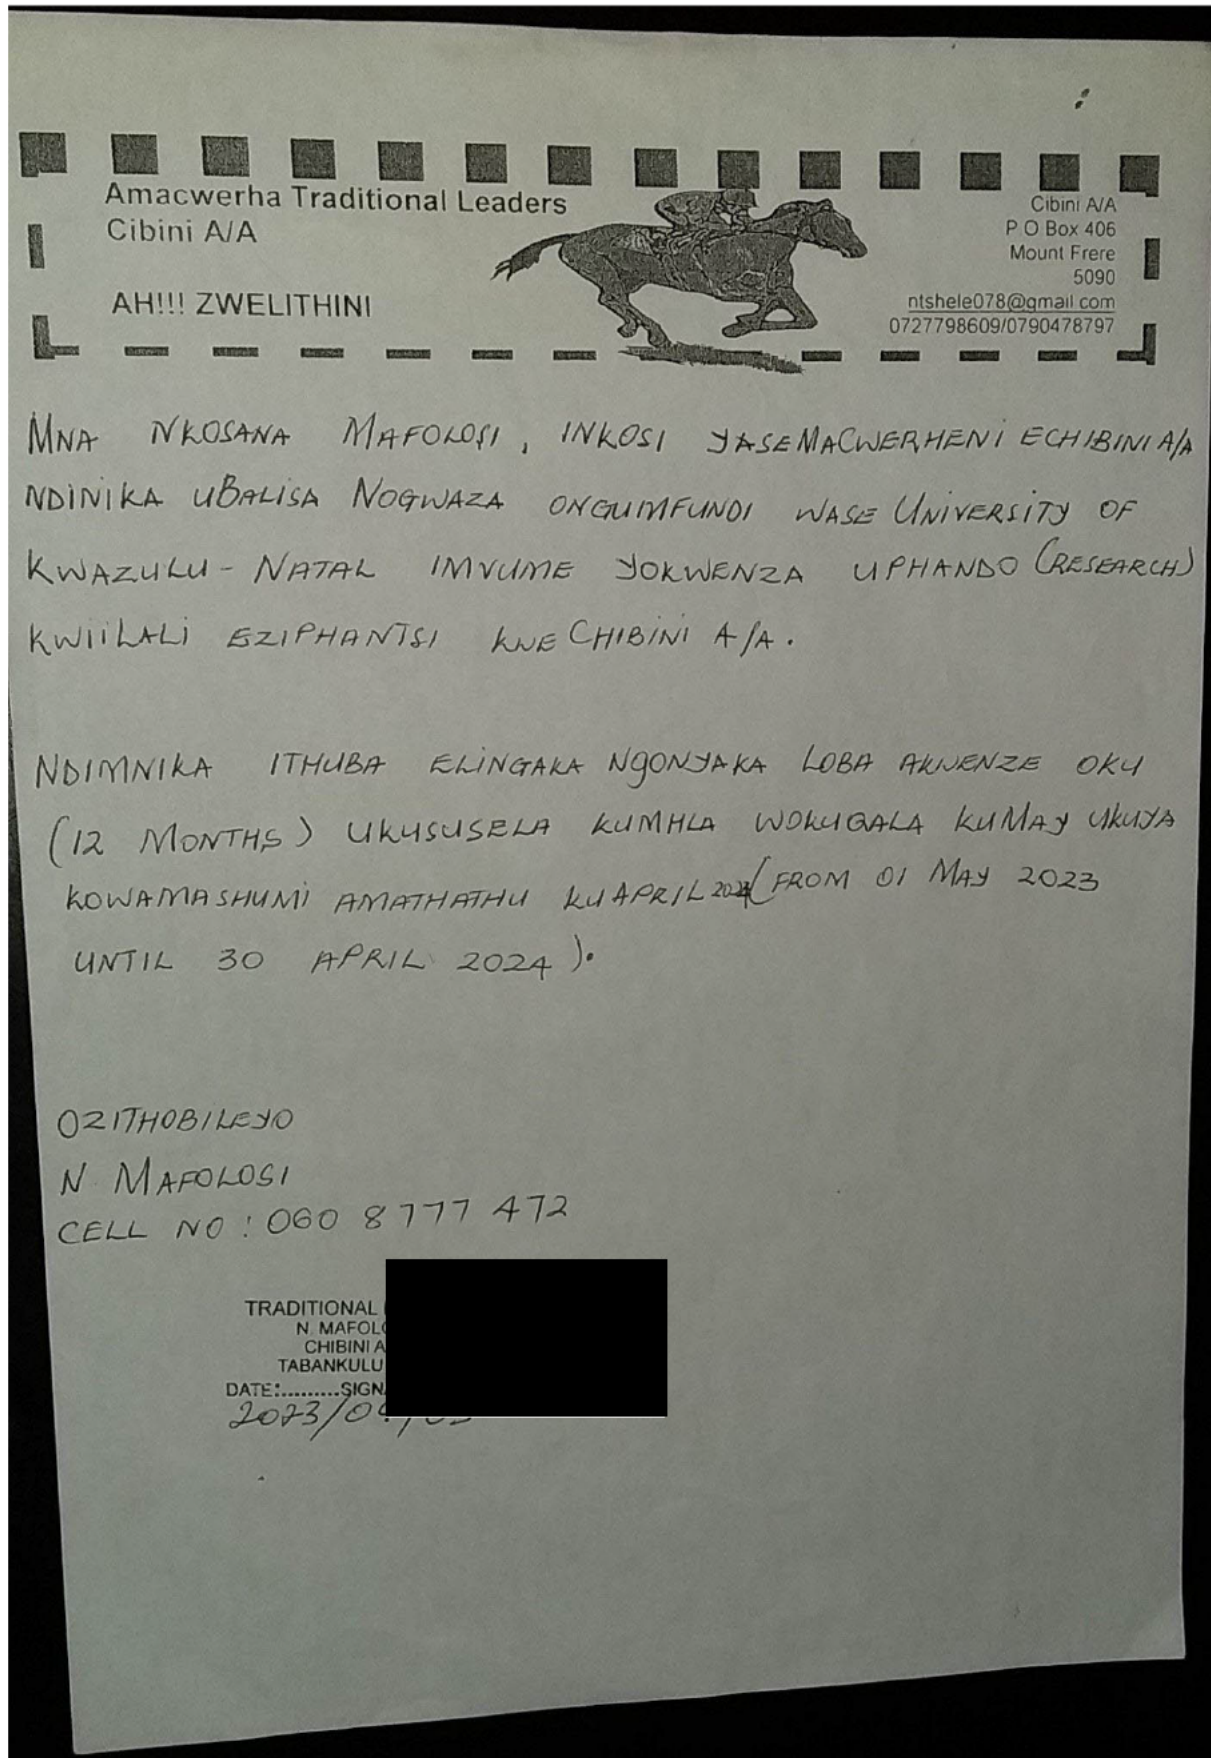 Amacwerha Traditional Leaders
Cibini A/A
AH!!! ZWELITHINI
Cibini A/A
P O Box 406
Mount Frere
5090
ntshele078@gmail.com
0727798609/0790478797
MNA NKOSANA MAFOLOSI, INKOSI YASEMACWERHENI ECHIBINI A/A
NDINIKA UBALISA NOGWAZA ONGUMFUNDI WASE UNIVERSITY OF
KWAZULU-NATAL IMVUME YOKWENZA UPHANDO (RESEARCH)
KWIILALI EZIPHANTSI KWE CHIBINI A/A.
NDIMNIKA ITHUBA ELINGAKA NGONYAKA LOBA AKWENZE OKU
(12 MONTHS) UKUSUSELA KUMHLA WOKUQALA KUMAY UKUYA
KOWAMASHUMI AMATHATHU KUAPRIL 2024 (FROM 01 MAY 2023
UNTIL 30 APRIL 2024).
OZITHOBILEYO
N. MAFOLOSI
CELL NO: 060 8777 472
TRADITIONAL
N. MAFOLO
CHIBINI A
TABANKULU
DATE:.........SIGNA
2023/04/